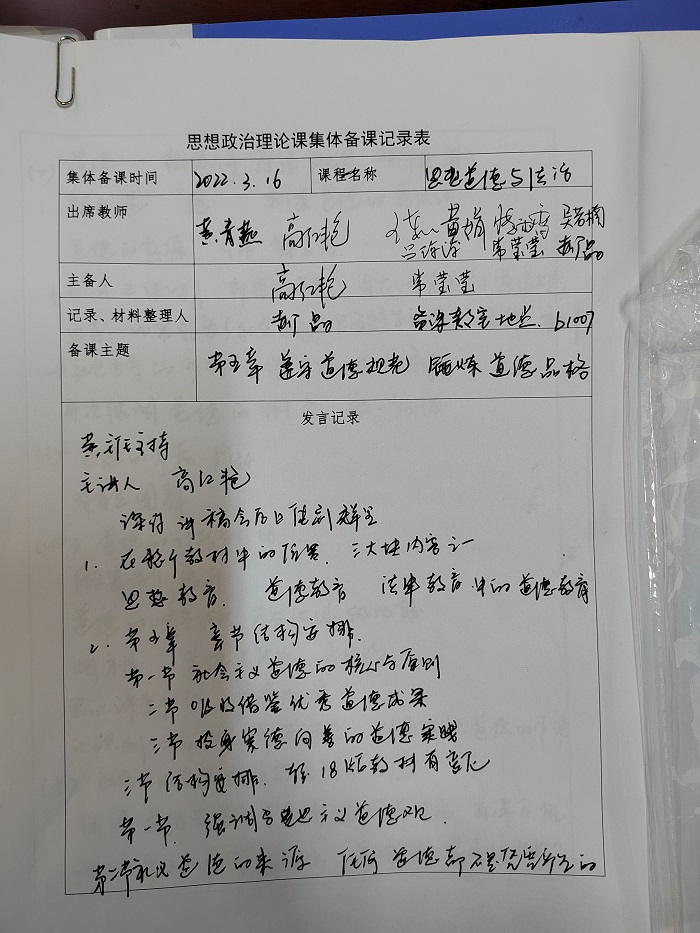 思想政治理论课集体备课记录表
集体备课时间 2022.3.16 课程名称 思想道德与法治
出席教师 黄青燕 高红艳 黄娟
吕诗淳 常莹莹
主备人 高红艳 常莹莹
记录、材料整理人 备课教室地点. b1007
备课主题 第五章 遵守道德规范 锤炼道德品格
发言记录
黄主任主持
主讲人 高红艳
课件 讲稿会后上传到群里
1. 在整个教材中的位置. 三大块内容之一
思想教育. 道德教育 法律教育中的道德教育
2. 第五章 章节结构安排.
第一节 社会主义道德的核心与原则
二节 吸收借鉴优秀道德成果
三节 投身崇德向善的道德实践
三节结构安排. 较18版教材有变化
第一节. 强调马克思主义道德观.
第二节 道德的来源 任何道德都不是凭空而生的